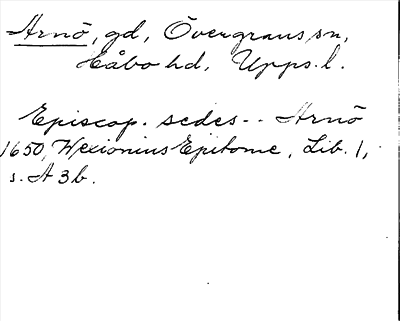 Arnö, gd, Övergrans sn,
Håbo hd, Upps. l.
Episcop. sedes - - Arnö
1650, Wexionius Epitome, Lib. 1,
s. A 3 b.